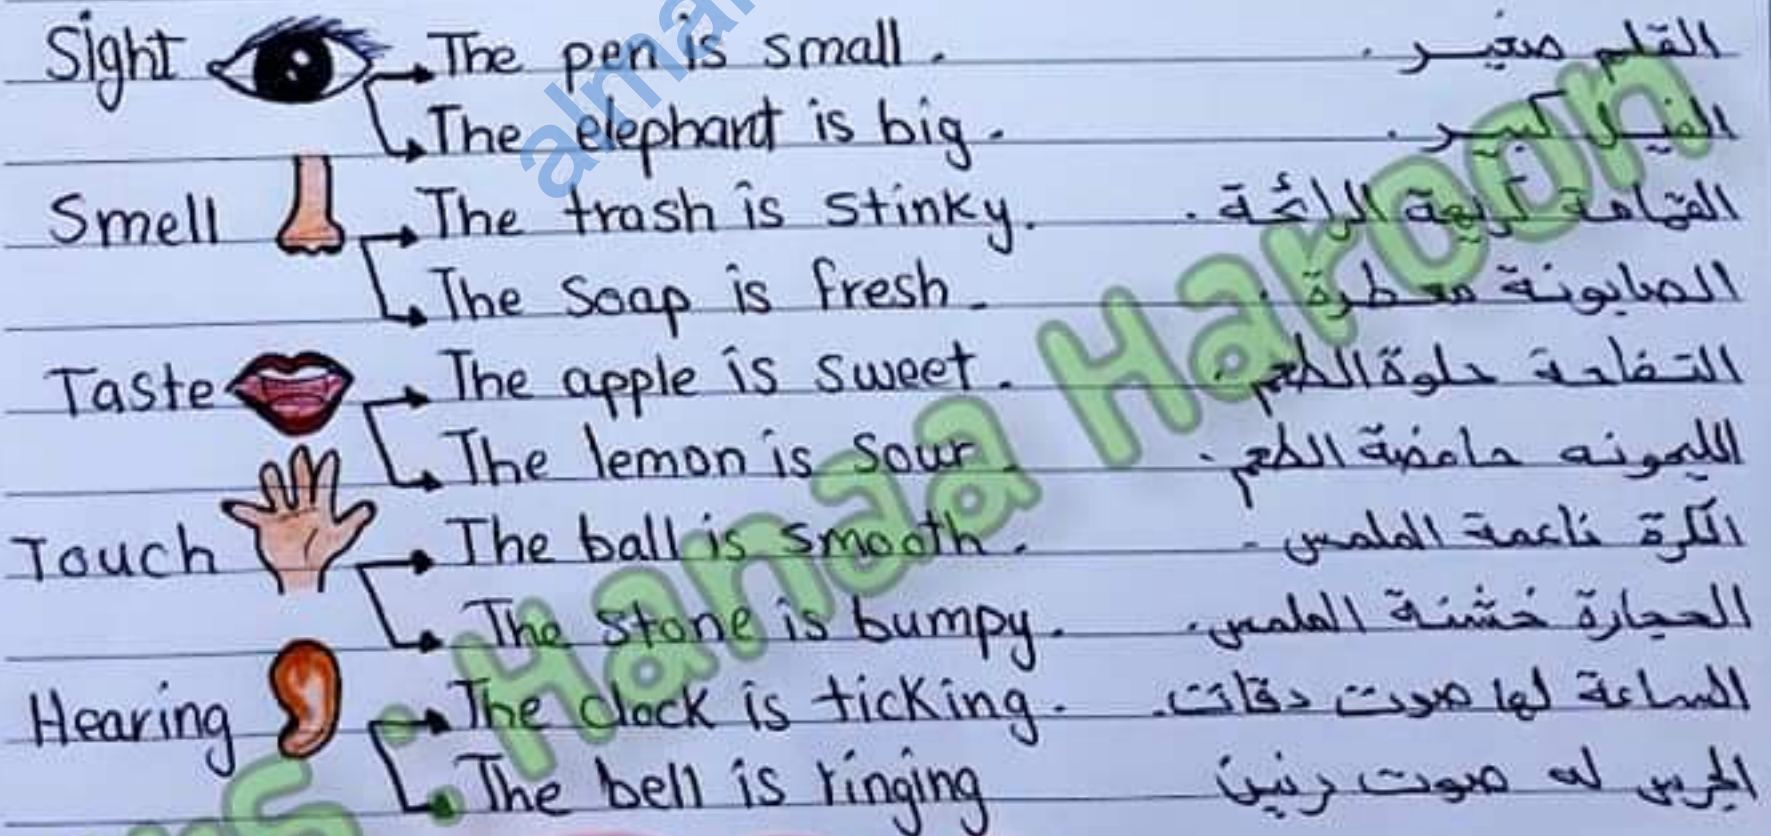 Sight The pen is small . القلم صغير .
The elephant is big . الفيل كبير .
Smell The trash is stinky . القمامة كريهة الرائحة .
The soap is fresh . الصابونة معطرة .
Taste The apple is sweet . التفاحة حلوة الطعم .
The lemon is sour . الليمونه حامضة الطعم .
Touch The ball is smooth . الكرة ناعمة الملمس .
The stone is bumpy . الحجارة خشنة الملمس .
Hearing The clock is ticking . الساعة لها صوت دقات .
The bell is ringing الجرس له صوت رنين
: Hanaa Haroon